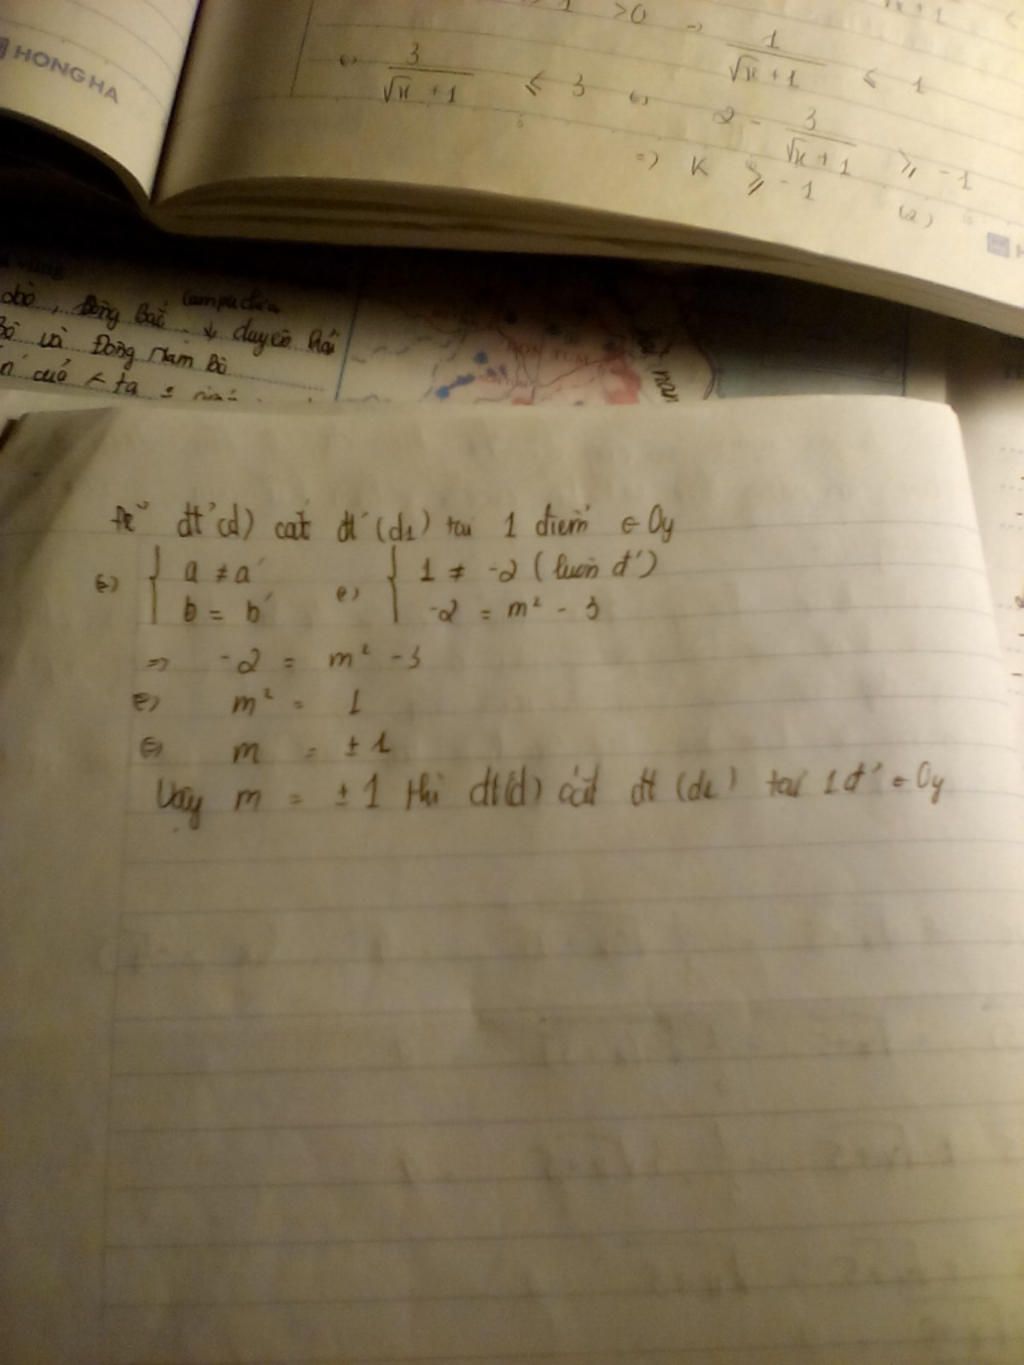 HONG HA
> 0 => 1/(√x + 1) ≤ 1
<=> 3/(√x + 1) ≤ 3 <=> 2 - 3/(√x + 1) ≥ -1
=> K ≥ -1 (2)
Đông Bắc Campuchia
duyên hải
Bộ và Đông Nam Bộ
Để đt (d) cắt đt (d1) tại 1 điểm ∈ Oy
<=> { a ≠ a' <=> { 1 ≠ -2 (luôn đ')
b = b' -2 = m² - 3
=> -2 = m² - 3
<=> m² = 1
<=> m = ± 1
Vậy m = ± 1 thì đt (d) cắt đt (d1) tại 1 đ' ∈ Oy